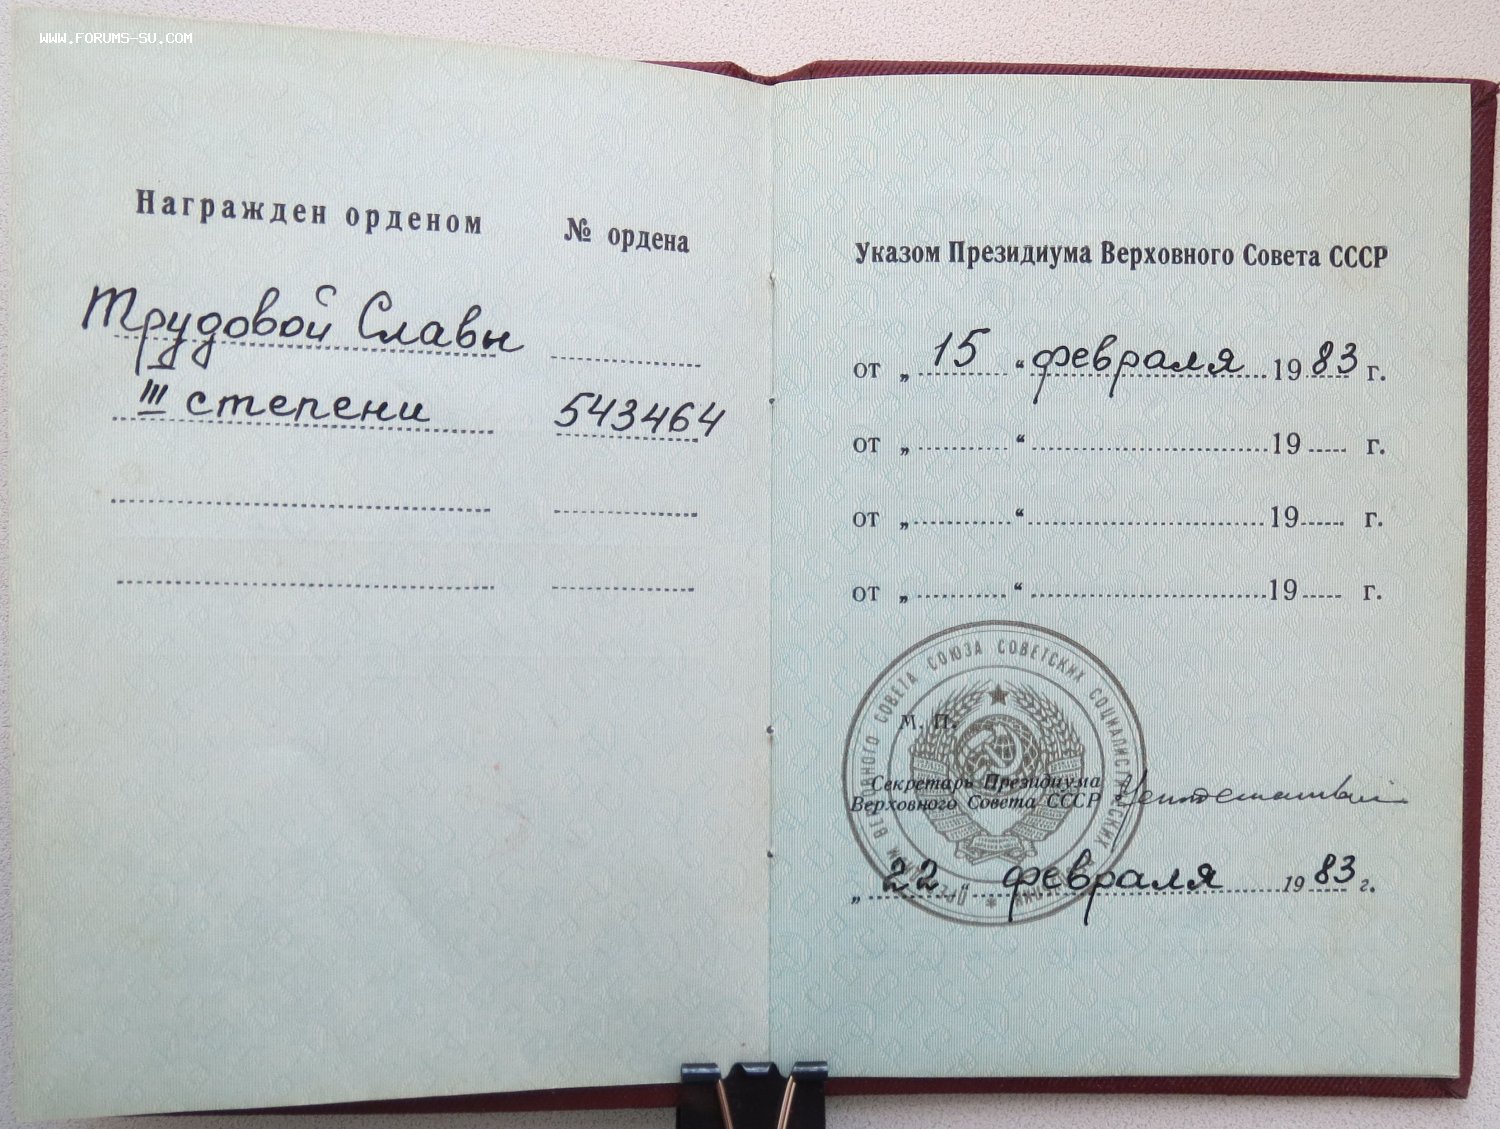 WWW.FORUMS-SU.COM
Награжден орденом
№ ордена
Трудовой Славы
III степени 543464
Указом Президиума Верховного Совета СССР
от „ 15 “ февраля 19 83 г.
от „ “ 19 г.
от „ “ 19 г.
от „ “ 19 г.
ПРЕЗИДИУМ ВЕРХОВНОГО СОВЕТА СОЮЗА СОВЕТСКИХ СОЦИАЛИСТИЧЕСКИХ
М. П.
Секретарь Президиума
Верховного Совета СССР
„ 22 “ февраля 19 83 г.